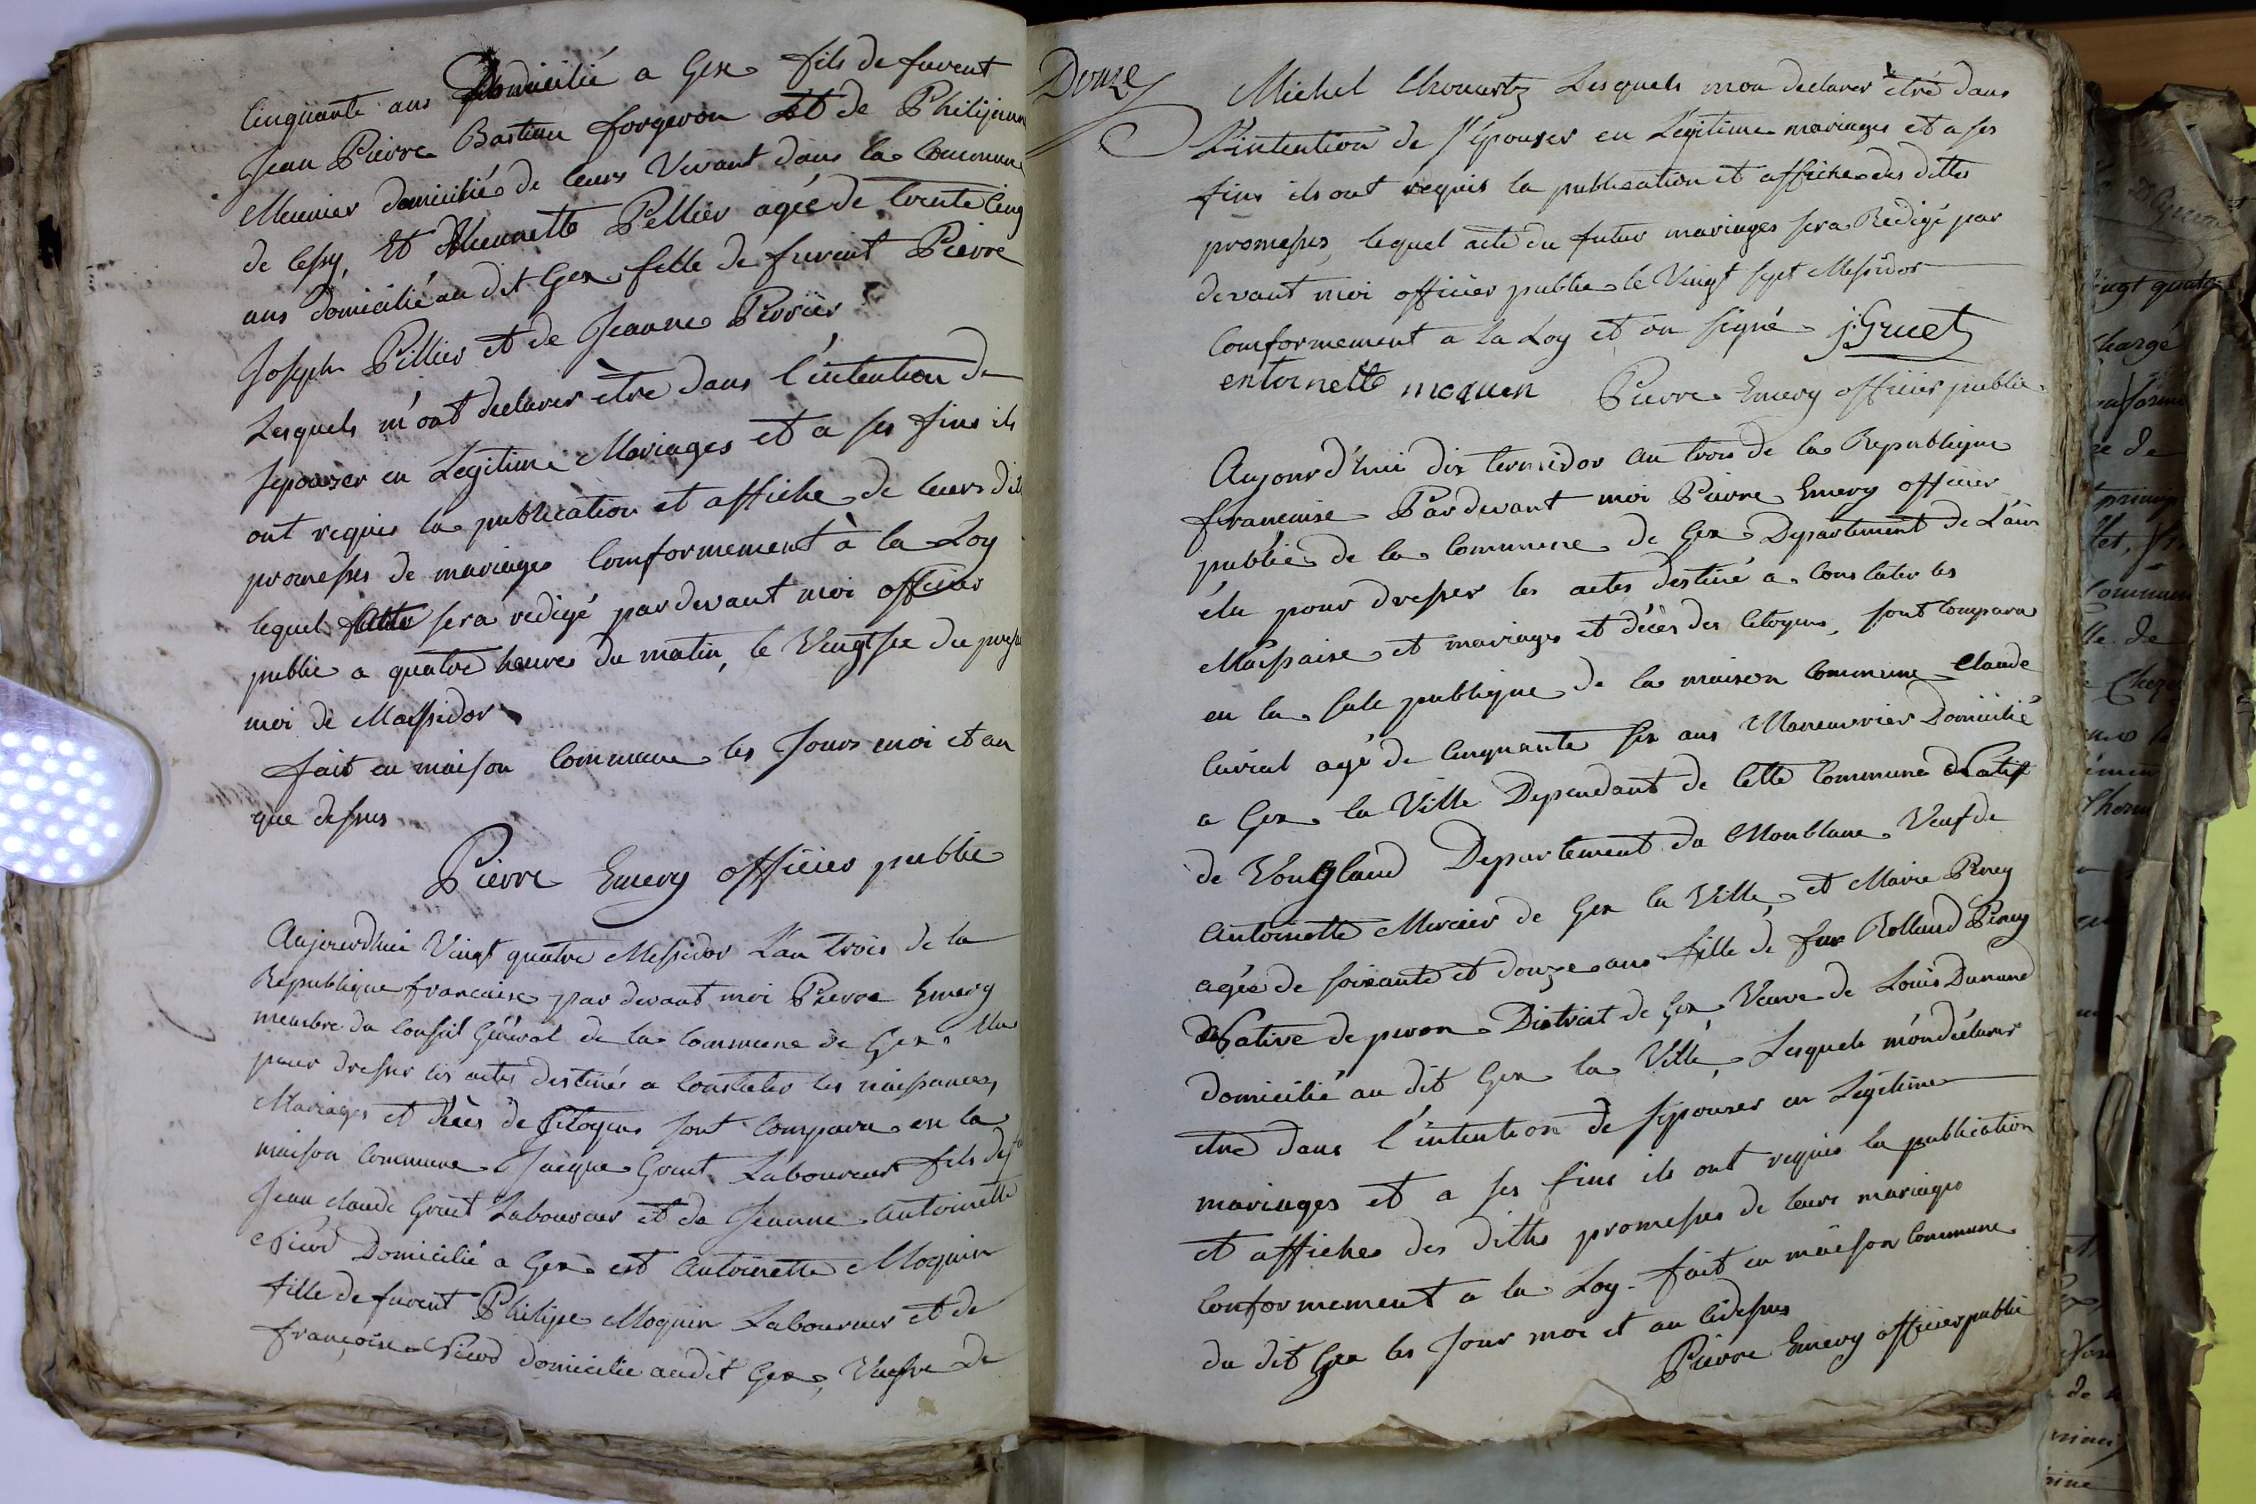 Cinquante ans Domicilié a Gex fils de furent
Jean Pierre Bastian forgeron Et de Philijeanne
Meunier domiciliés de leurs Vivant dans la Commune
de Cessy, Et Pellier agée de trente Cinq
ans domicilié au dit Gex fille de furent Pierre
Joseph Pillier et de Jeanne Perrier
Lesquels m'ont declarer être dans l'intention de
sepouser en Legitime Mariages et a ses fins ils
ont requis la publication et affiche de leurs dit
promesses de mariages Comformement à la Loy
lequel sera redigé pardevant moi officier
public a quatre heures du matin, le Vingt six du
moi de Massidor
fait en maison Commune les Jours moi et an
que dessus
Pierre Emery officier public
Aujourdhui Vingt quatre Messidor L'an trois de la
Republique francaise par devant moi Pierre Emery
membre du Conseil Général de la Commune de Gex Elu
pour dresser les actes destinés a Constater les naissances,
Mariages et décès de Citoyens sont Comparu en la
maison Commune Jacque Gruet Laboureur fils de
Jean claude Gruet Laboureur et de Jeanne Antoinette
Picod Domicilié a Gex est Antoinette Moquin
fille de furent Philipe Moquin Laboureur et de
françoise Picod domicilie audit Gex, Veufve de
Douze
Michel Lesquels mon declarer être dans
L'intention de s'épouser en Legitime mariages et a ses
fins ils ont requis la publication et affiche des dittes
promesses, lequel acte du futur mariages sera Redigé par
devant moi officier public le Vingt sept Messidor
Comformement a la Loy et on signé j: Gruet
entoinette moquin Pierre Emery officier public
Aujourd'hui dix termidor an trois de la Republique
francaise Pardevant moi Pierre Emery officier
public de la Commune de Gex Departement de L'ain
élu pour dresser les actes destiné a Constater les
Naissaise et mariages et décès des Citoyens, sont Comparu
en la sale publique de la maison Commune Claude
agé de Cinquante six ans Maneuvrier Domicilié
a Gex la Ville Dependant de Cette Commune Natif
de Departement du Monblanc Veuf de
Antoinette Mercier de Gex la Ville, et Marie Perey
agée de soixante et douze ans fille de feu Rolland Perey
Native de peron District de Gex Veuve de Louis Durand
domicilié au dit Gex la Ville, Lesquels m'on déclarer
etre dans l'intention de sépouser en Legitime
mariages et a ses fins ils ont requis la publication
et affiches des dittes promesses de leurs mariages
Conformement a la Loy - fait en maison Commune
du dit Gex les Jour moi et an Cidessus
Pierre Emery officier public